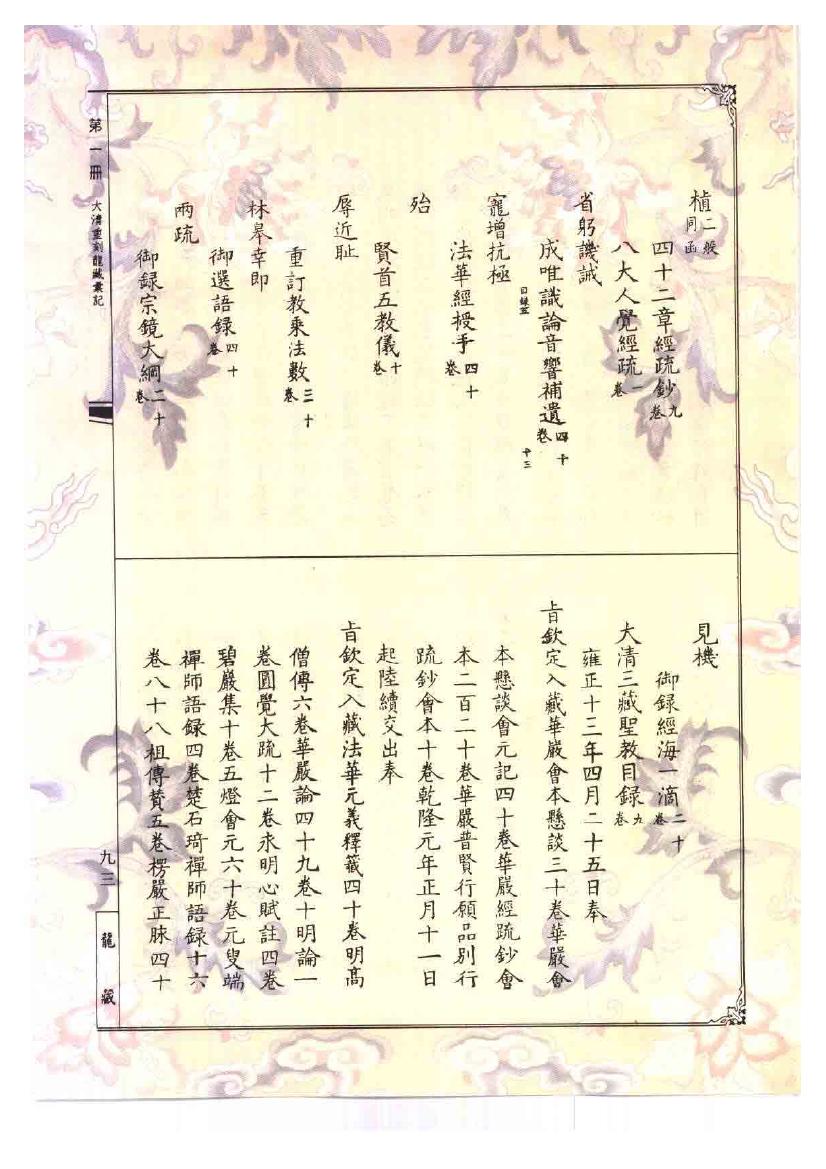 植二般同函
四十二章經疏鈔九卷
八大人覺經疏一卷
省躬譏誡
成唯識論音響補遺四十卷
目錄
十三
寵增抗極
法華經授手四十卷
殆
賢首五教儀十卷
辱近耻
重訂教乘法數三十卷
林皋幸即
御選語録四十卷
兩疏
御録宗鏡大綱二十卷
見機
御録經海一滴二十卷
大清三藏聖教目録九卷
雍正十三年四月二十五日奉
旨欽定入藏華嚴會本懸談三十卷華嚴會
本懸談會元記四十卷華嚴經疏鈔會
本二百二十卷華嚴普賢行願品别行
疏鈔會本十卷乾隆元年正月十一日
起陸續交出奉
旨欽定入藏法華元義釋籤四十卷明髙
僧傳六卷華嚴論四十九卷十明論一
卷圓覺大疏十二卷永明心賦註四卷
碧巖集十卷五燈會元六十卷元叟端
禪師語録四卷楚石琦禪師語録十六
卷八十八祖傳賛五卷楞嚴正脉四十
第一冊 大清重刻龍藏彙記
九三
龍藏